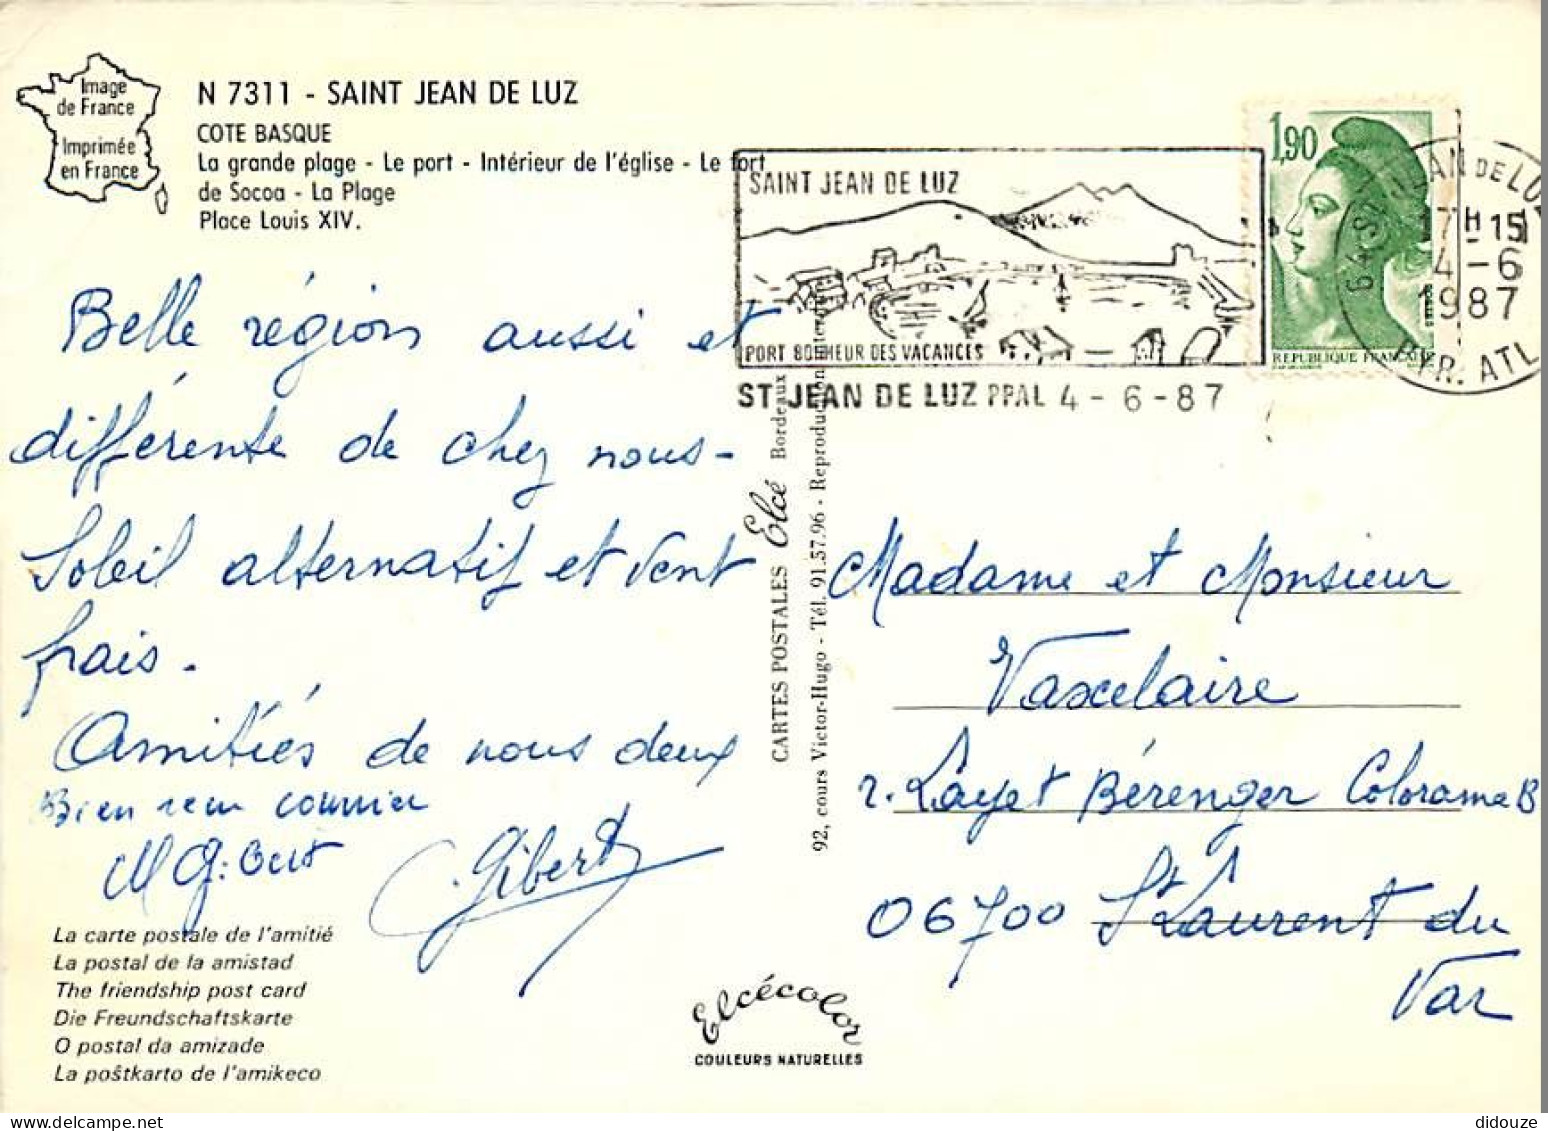 Image
de France
Imprimée
en France
N 7311 - SAINT JEAN DE LUZ
COTE BASQUE
La grande plage - Le port - Intérieur de l'église - Le fort
de Socoa - La Plage
Place Louis XIV.
SAINT JEAN DE LUZ
PORT BONHEUR DES VACANCES
ST JEAN DE LUZ PPAL 4 - 6 - 87
1,90
REPUBLIQUE FRANCAISE
64 ST JEAN DE LUZ
17 H 15
4 - 6
1987
PYR. ATL
Belle région aussi et
différente de chez nous-
Soleil alternatif et vent
frais.
Amitiés de nous deux
Bien
M Gibert
Gibert
La carte postale de l'amitié
La postal de la amistad
The friendship post card
Die Freundschaftskarte
O postal da amizade
La poŝtkarto de l'amikeco
CARTES POSTALES Elcé Bordeaux
92, cours Victor-Hugo - Tél. 91.57.96 - Reproduction interdite
Elcécolor
COULEURS NATURELLES
Madame et Monsieur
Vaxelaire
r. Layet Bérenger Colorama B
06700 St Laurent du
Var
didouze